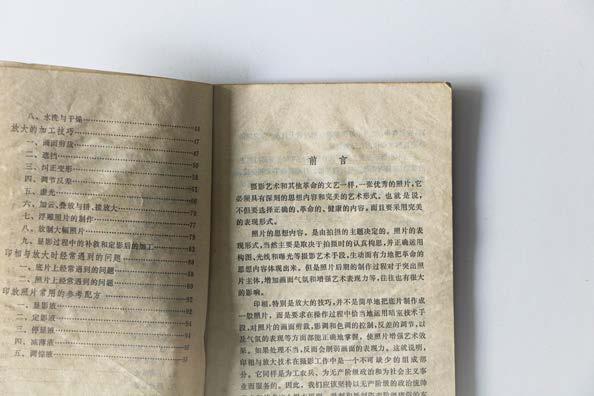 八、水洗与干燥 44
放大的加工技巧 47
一、画面剪裁 47
二、遮挡 50
三、纠正变形
四、调节反差
五、虚光
六、加云、叠放与搭、揉放大
七、浮雕照片的制作
八、放制大幅照片
九、显影过程中的补救和定影后的加工
印相与放大时经常遇到的问题
一、底片上经常遇到的问题
二、照片上经常遇到的问题
印放照片常用的参考配方 92
一、显影液
二、定影液
三、停显液
四、减薄液
五、调棕液
前言
摄影艺术和其他革命的文艺一样，一张优秀的照片，它
必须具有深刻的思想内容和完美的艺术形式。也就是说，
不但要选择正确的、革命的、健康的内容，而且要采用完美
的表现形式。
照片的思想内容，是由拍摄的主题决定的。照片的表
现形式，当然主要是取决于拍摄时的认真构思，并正确运用
构图、光线和曝光等摄影艺术手段，生动而有力地把革命的
思想内容体现出来。但是照片后期的制作过程对于突出照
片主体，增加画面气氛和增强艺术表现力等，往往也有很大
的影响。
印相，特别是放大的技巧，并不是简单地把底片制作成
一般照片，而是要求在操作过程中恰当地运用暗室技术手
段，对照片的画面剪裁，影调和色调的控制，反差的调节，以
及气氛的表现等方面都能正确地掌握，使照片增强艺术效
果。如果处理不当，反而会削弱画面的表现力。这就说明，
印相与放大技术在摄影工作中是一个不可缺少的组成部
分。它同样是为工农兵、为无产阶级政治和为社会主义事
业而服务的。因此，我们应该坚持以无产阶级的政治统帅